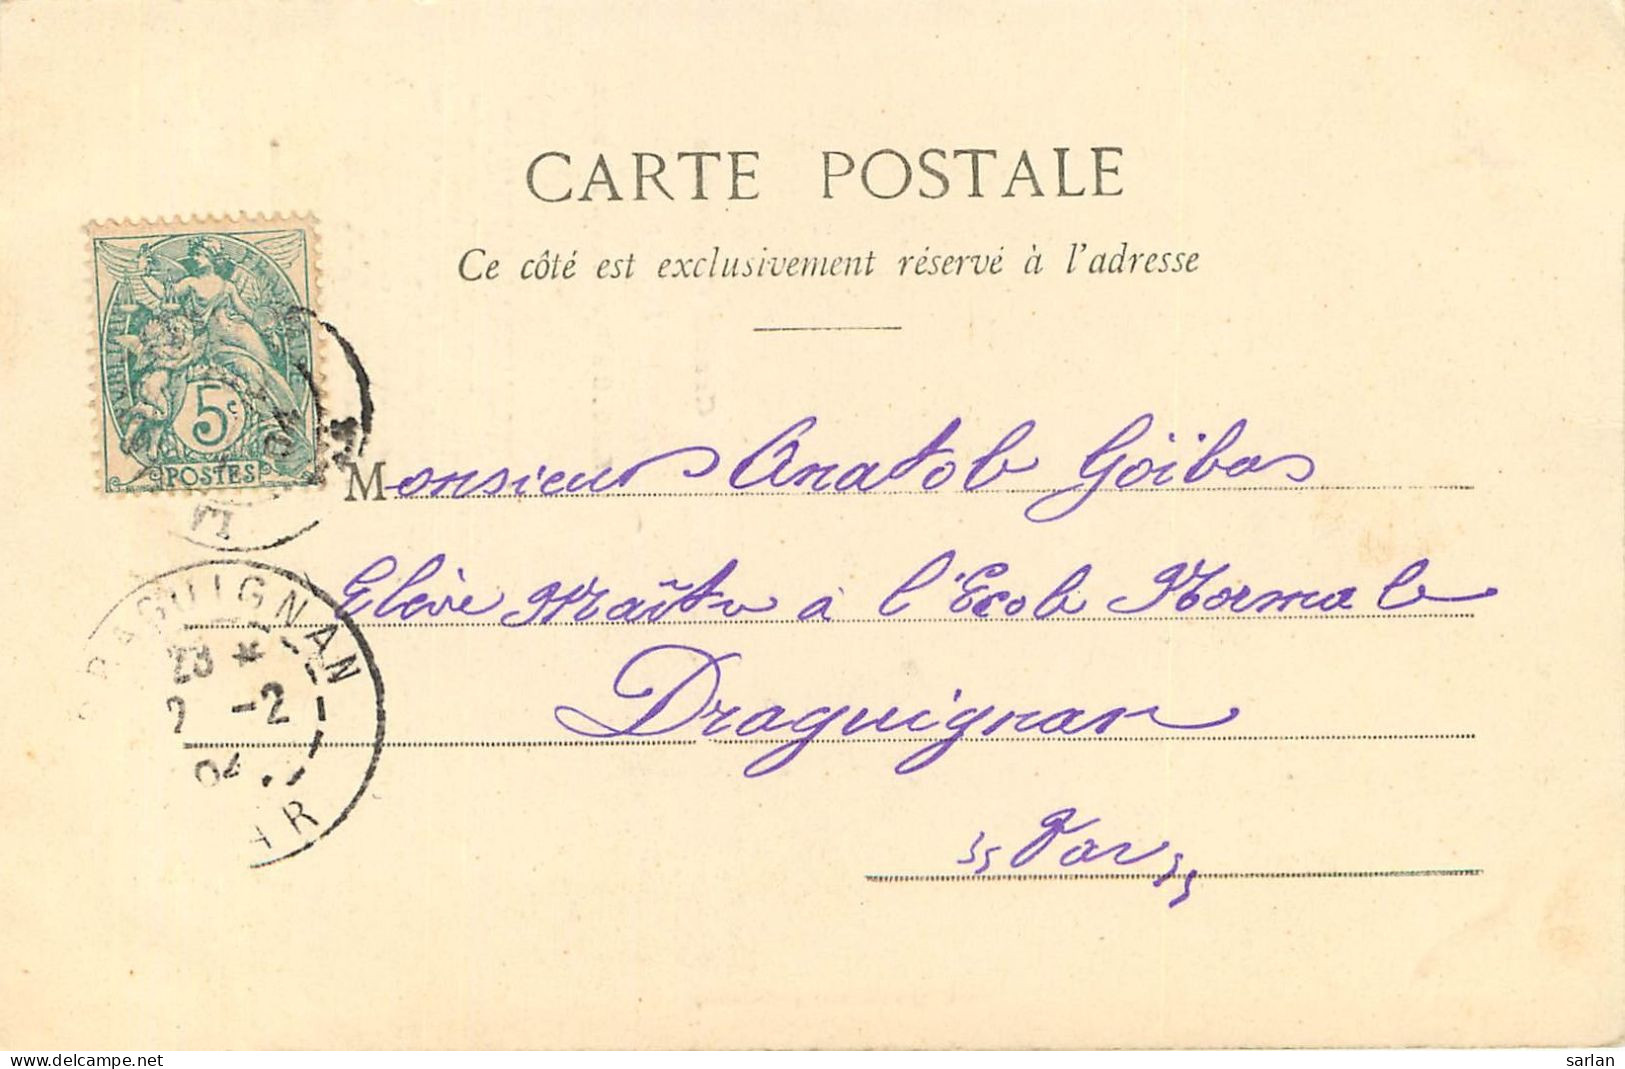 CARTE POSTALE
Ce côté est exclusivement réservé à l'adresse
5c
POSTES
Monsieur Anatole Göibas
Elève Maître à l'Ecole Normale
Draguignan
"Var"
DRAGUIGNAN
23 *
2 -2
04
VAR
www.delcampe.net
sarlan